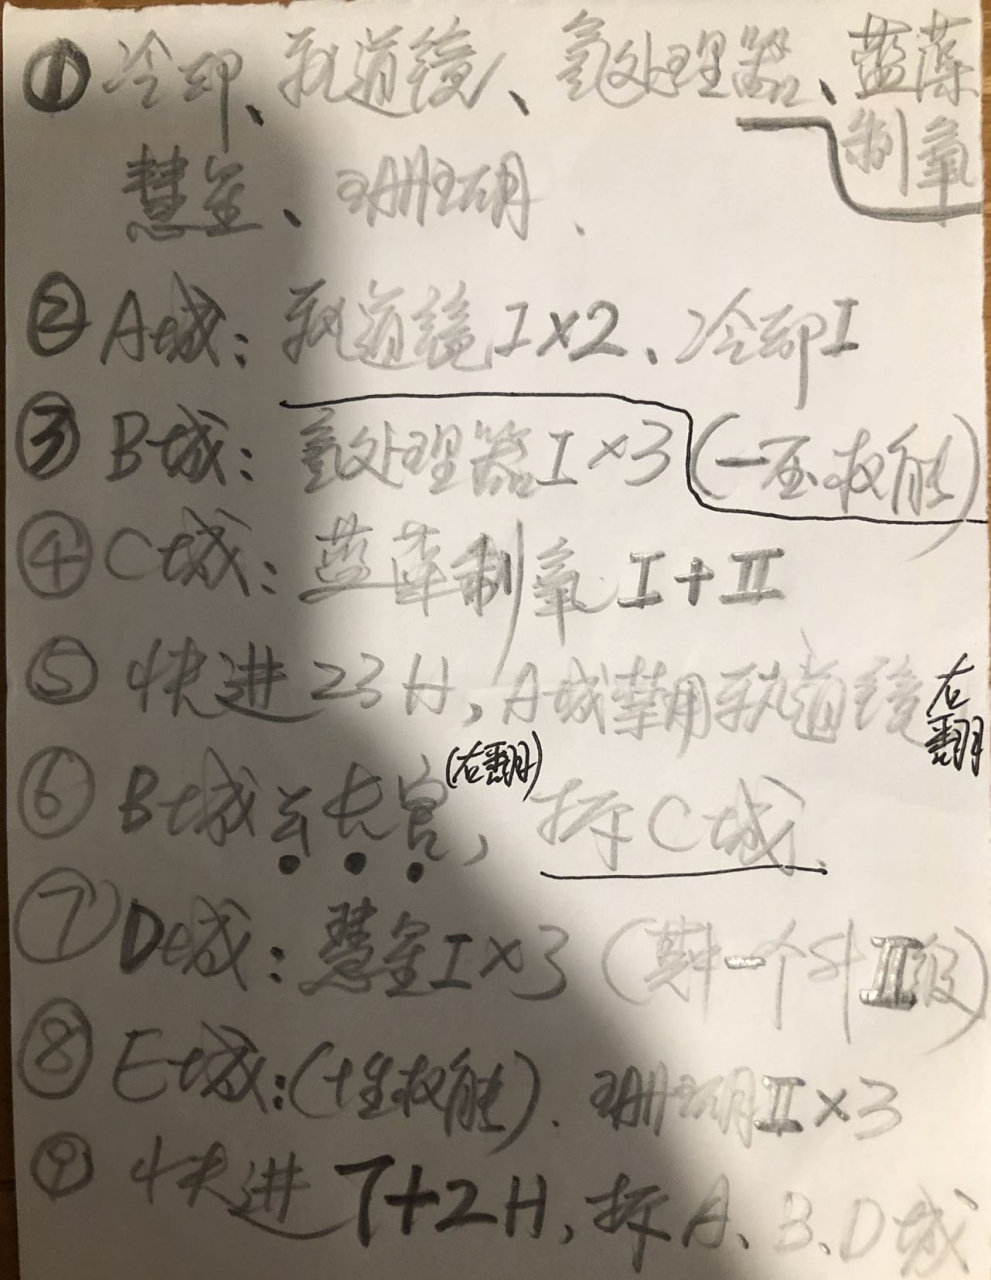 ① 冷却、轨道镜、氢处理器、蓝藻制氧
慧星、珊瑚、
② A城：轨道镜I×2、冷却I
③ B城：氢处理器I×3(一至权能)
④ C城：蓝藻制氧 I+II
⑤ 快进23H，A城禁用轨道镜 右翻
⑥ B城去长官(右翻)，拆C城.
⑦ D城：慧星I×3 (其中一个升II级)
⑧ E城：(生权能). 珊瑚II×3
⑨ 快进7+2H，拆A、B、D城